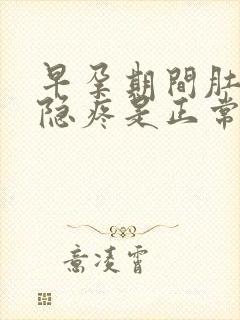 早孕期間肚
隐疼是正常
意凌霄